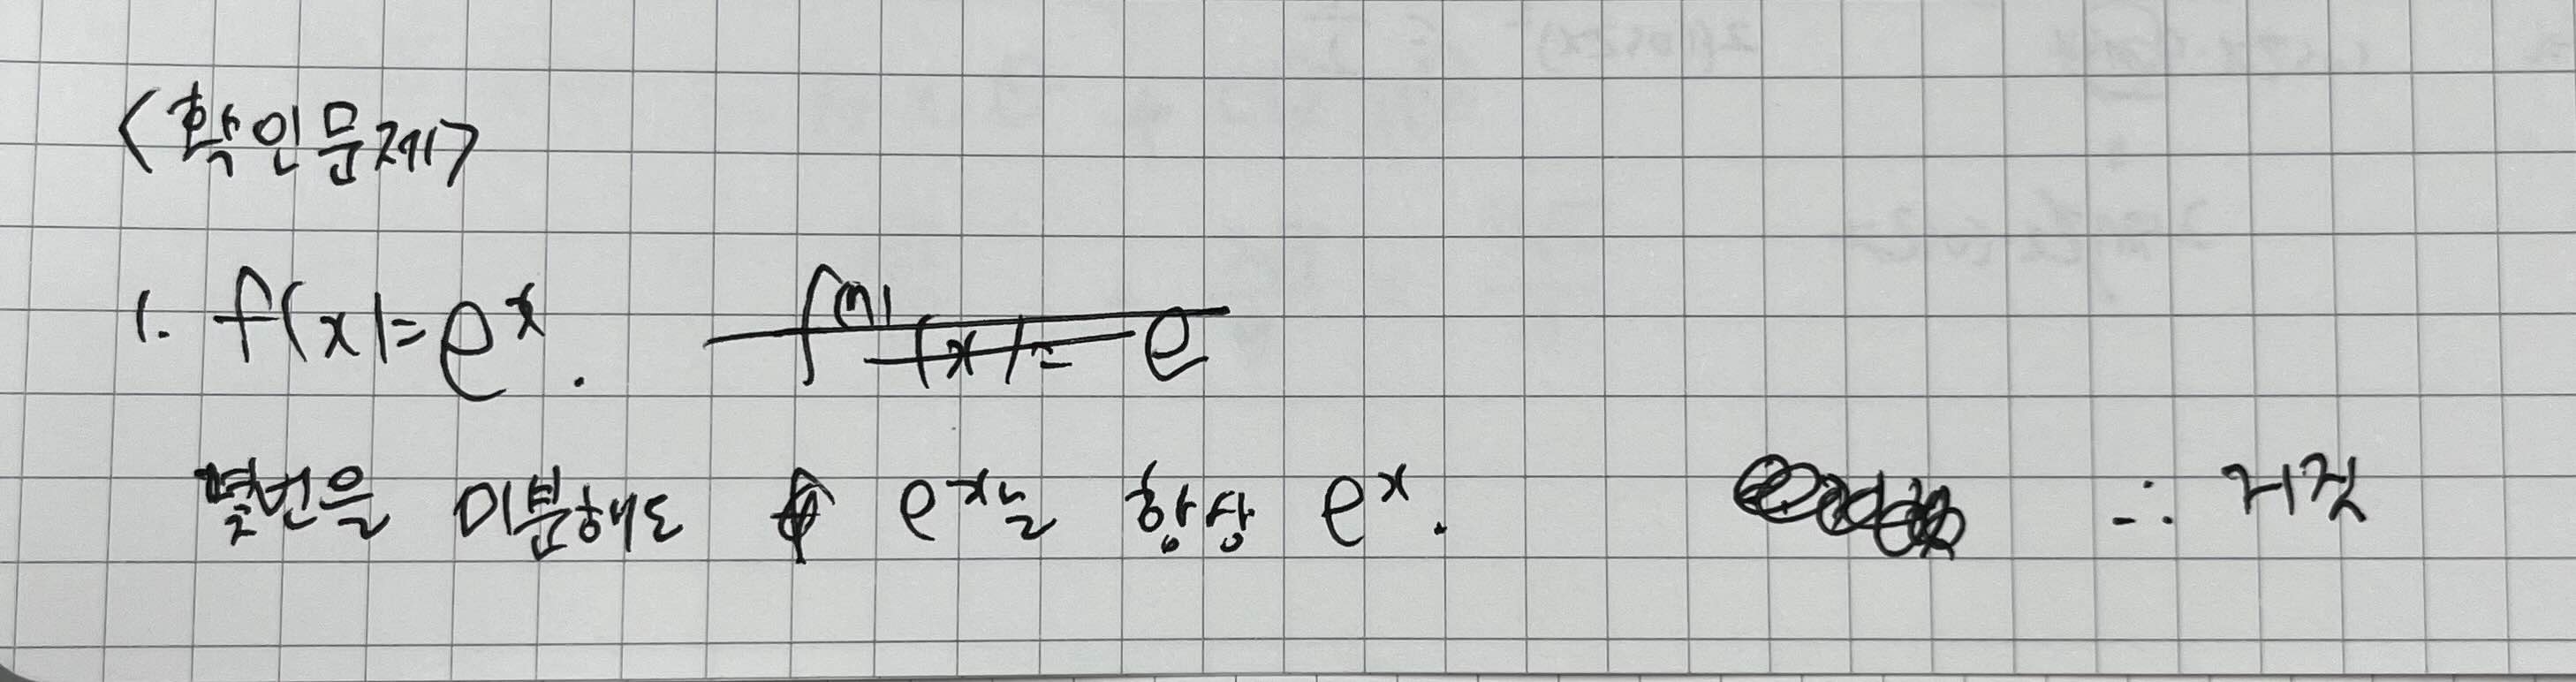 <확인문제>
1. f(x)=e^x.
몇번을 미분해도 e^x는 항상 e^x. ∴ 거짓